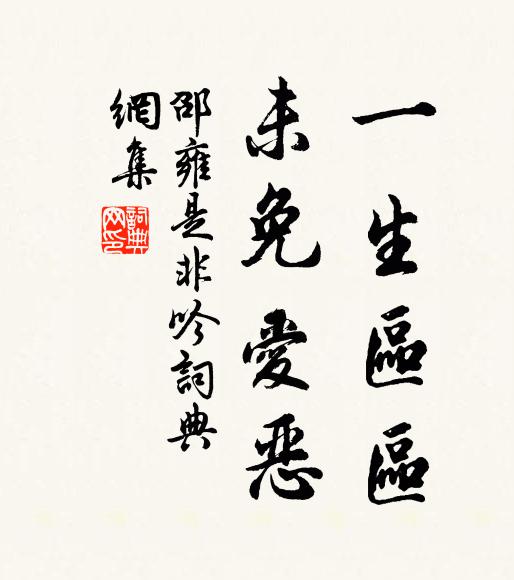 一生區區
未免愛惡
邵雍是非吟詞典
網集
詞典
网印